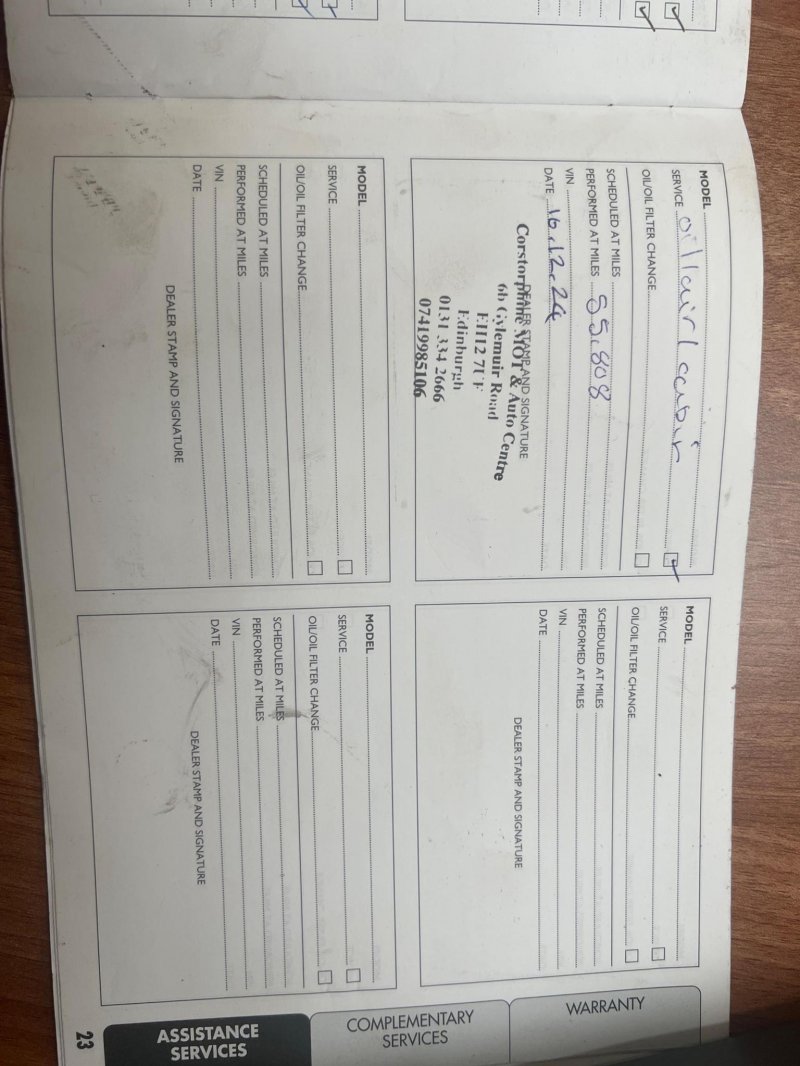 MODEL
SERVICE oil/air/cabin
OIL/OIL FILTER CHANGE
SCHEDULED AT MILES
PERFORMED AT MILES 55.808
VIN
DATE 16.12.24
DEALER STAMP AND SIGNATURE
Corstorphine MOT & Auto Centre
6b Gylemuir Road
EH12 7UF
Edinburgh
0131 334 2666
07419985106
MODEL
SERVICE
OIL/OIL FILTER CHANGE
SCHEDULED AT MILES
PERFORMED AT MILES
VIN
DATE
DEALER STAMP AND SIGNATURE
MODEL
SERVICE
OIL/OIL FILTER CHANGE
SCHEDULED AT MILES
PERFORMED AT MILES
VIN
DATE
DEALER STAMP AND SIGNATURE
MODEL
SERVICE
OIL/OIL FILTER CHANGE
SCHEDULED AT MILES
PERFORMED AT MILES
VIN
DATE
DEALER STAMP AND SIGNATURE
WARRANTY
COMPLEMENTARY
SERVICES
ASSISTANCE
SERVICES
23